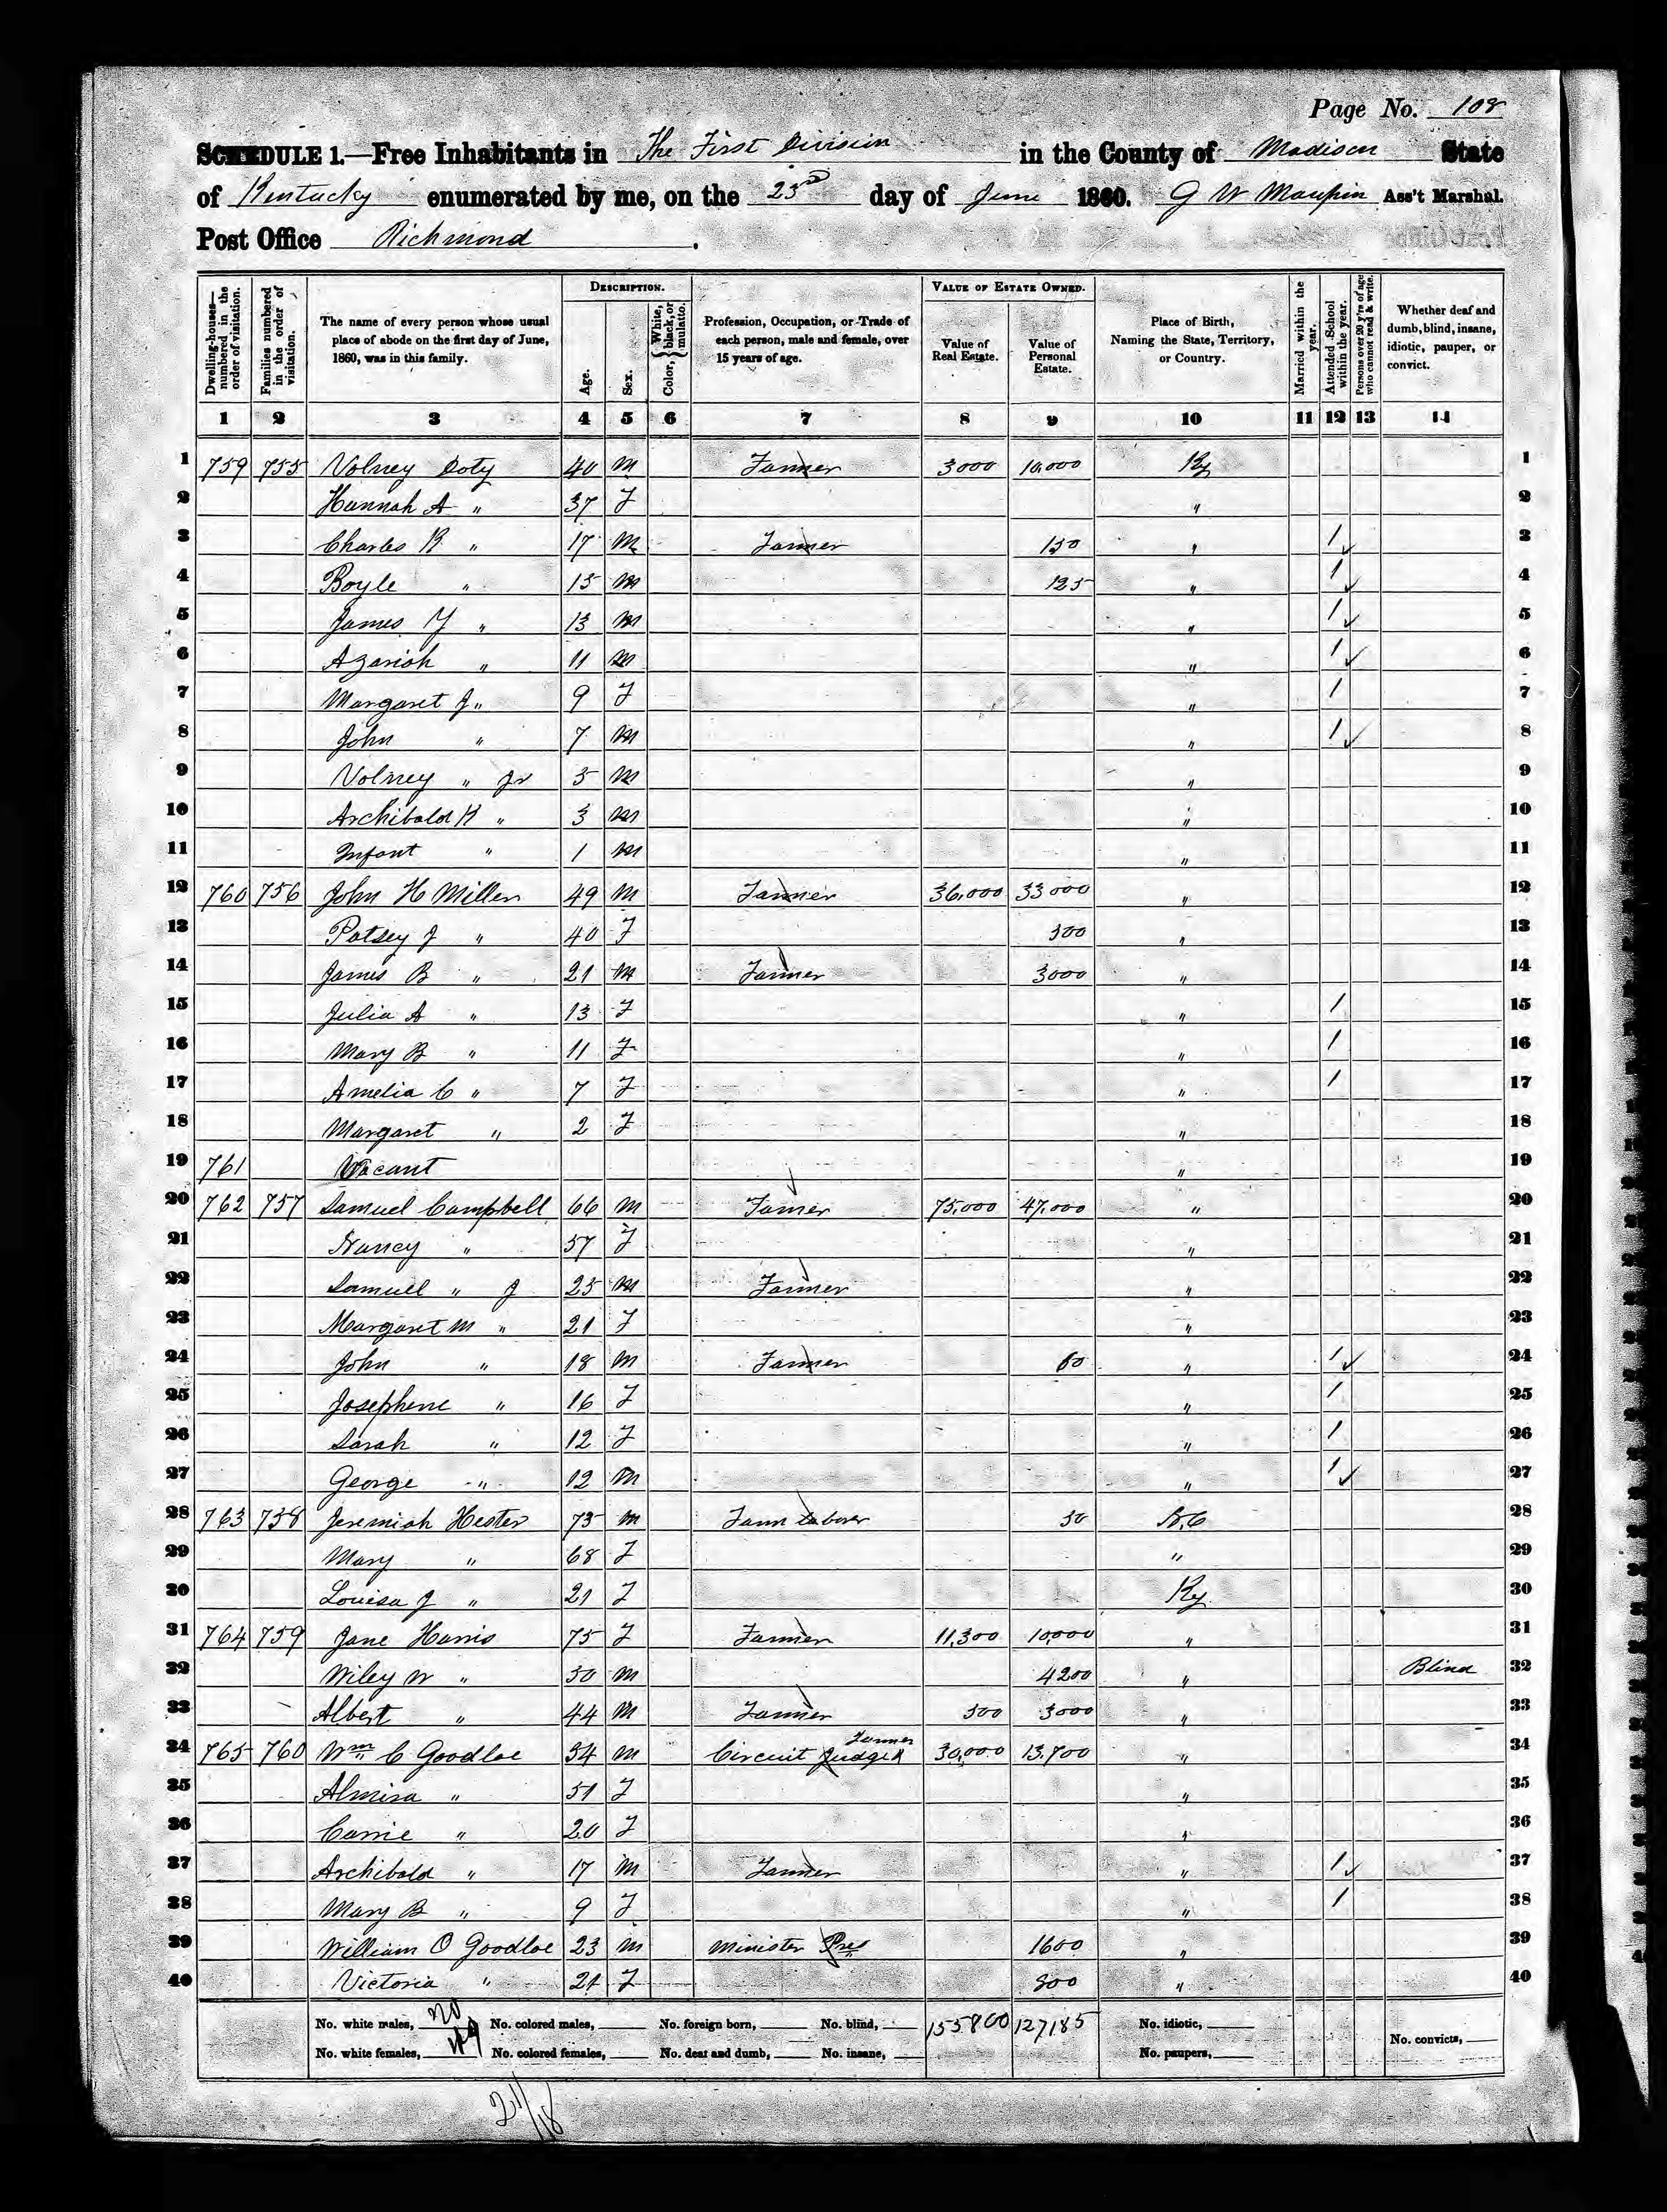 Page No. 108
SCHEDULE 1.—Free Inhabitants in The First Division in the County of Madison State
of Kentucky enumerated by me, on the 23rd day of June 1860. G W Maupin Ass't Marshal.
Post Office Richmond.
Dwelling-houses—numbered in the order of visitation.
Families numbered in the order of visitation.
The name of every person whose usual place of abode on the first day of June, 1860, was in this family.
DESCRIPTION.
Age.
Sex.
Color, { White, black, or mulatto.
Profession, Occupation, or Trade of each person, male and female, over 15 years of age.
VALUE OF ESTATE OWNED.
Value of Real Estate.
Value of Personal Estate.
Place of Birth, Naming the State, Territory, or Country.
Married within the year.
Attended School within the year.
Persons over 20 y'rs of age who cannot read & write.
Whether deaf and dumb, blind, insane, idiotic, pauper, or convict.
1 2 3 4 5 6 7 8 9 10 11 12 13 14
1 759 755 Volney Doty 40 M Farmer 3000 10,000 Ky 1
2 Hannah A " 37 F " 2
3 Charles K " 17 M Farmer 150 " 1 3
4 Boyle " 15 M 125 " 1 4
5 James Y " 13 M " 1 5
6 Azariah " 11 M " 1 6
7 Margaret J " 9 F " 1 7
8 John " 7 M " 1 8
9 Volney " Jr 5 M " 9
10 Archibald K " 3 M " 10
11 Infant " 1 M " 11
12 760 756 John H Miller 49 M Farmer 36,000 33000 " 12
13 Patsey J " 40 F 300 " 13
14 James B " 21 M Farmer 3000 " 14
15 Julia A " 13 F " 1 15
16 Mary B " 11 F " 1 16
17 Amelia C " 7 F " 1 17
18 Margaret " 2 F " 18
19 761 Vacant " 19
20 762 757 Samuel Campbell 66 M Farmer 75,000 47,000 " 20
21 Nancy " 57 F " 21
22 Samuel " J 25 M Farmer " 22
23 Margaret M " 21 F " 23
24 John " 18 M Farmer 60 " 1 24
25 Josephene " 16 F " 1 25
26 Sarah " 12 F " 1 26
27 George " 12 M " 1 27
28 763 758 Jeremiah Hester 73 M Farm Laborer 50 N.C 28
29 Mary " 68 F " 29
30 Louisa J " 21 F Ky 30
31 764 759 Jane Harris 75 F Farmer 11,300 10,000 " 31
32 Wiley W " 50 M 4200 " Blind 32
33 Albert " 44 M Farmer 500 3000 " 33
34 765 760 Wm C Goodloe 54 M Circuit Judge & Farmer 30,000 13,700 " 34
35 Almira " 51 F " 35
36 Carrie " 20 F " 36
37 Archibald " 17 M Farmer " 1 37
38 Mary B " 9 F " 1 38
39 William O Goodloe 23 M Minister Pres 1600 " 39
40 Victoria " 21 F 800 " 40
No. white males, No. colored males, No. foreign born, No. blind, 155800 127185 No. idiotic,
No. white females, No. colored females, No. deaf and dumb, No. insane, No. paupers, No. convicts,
21/18